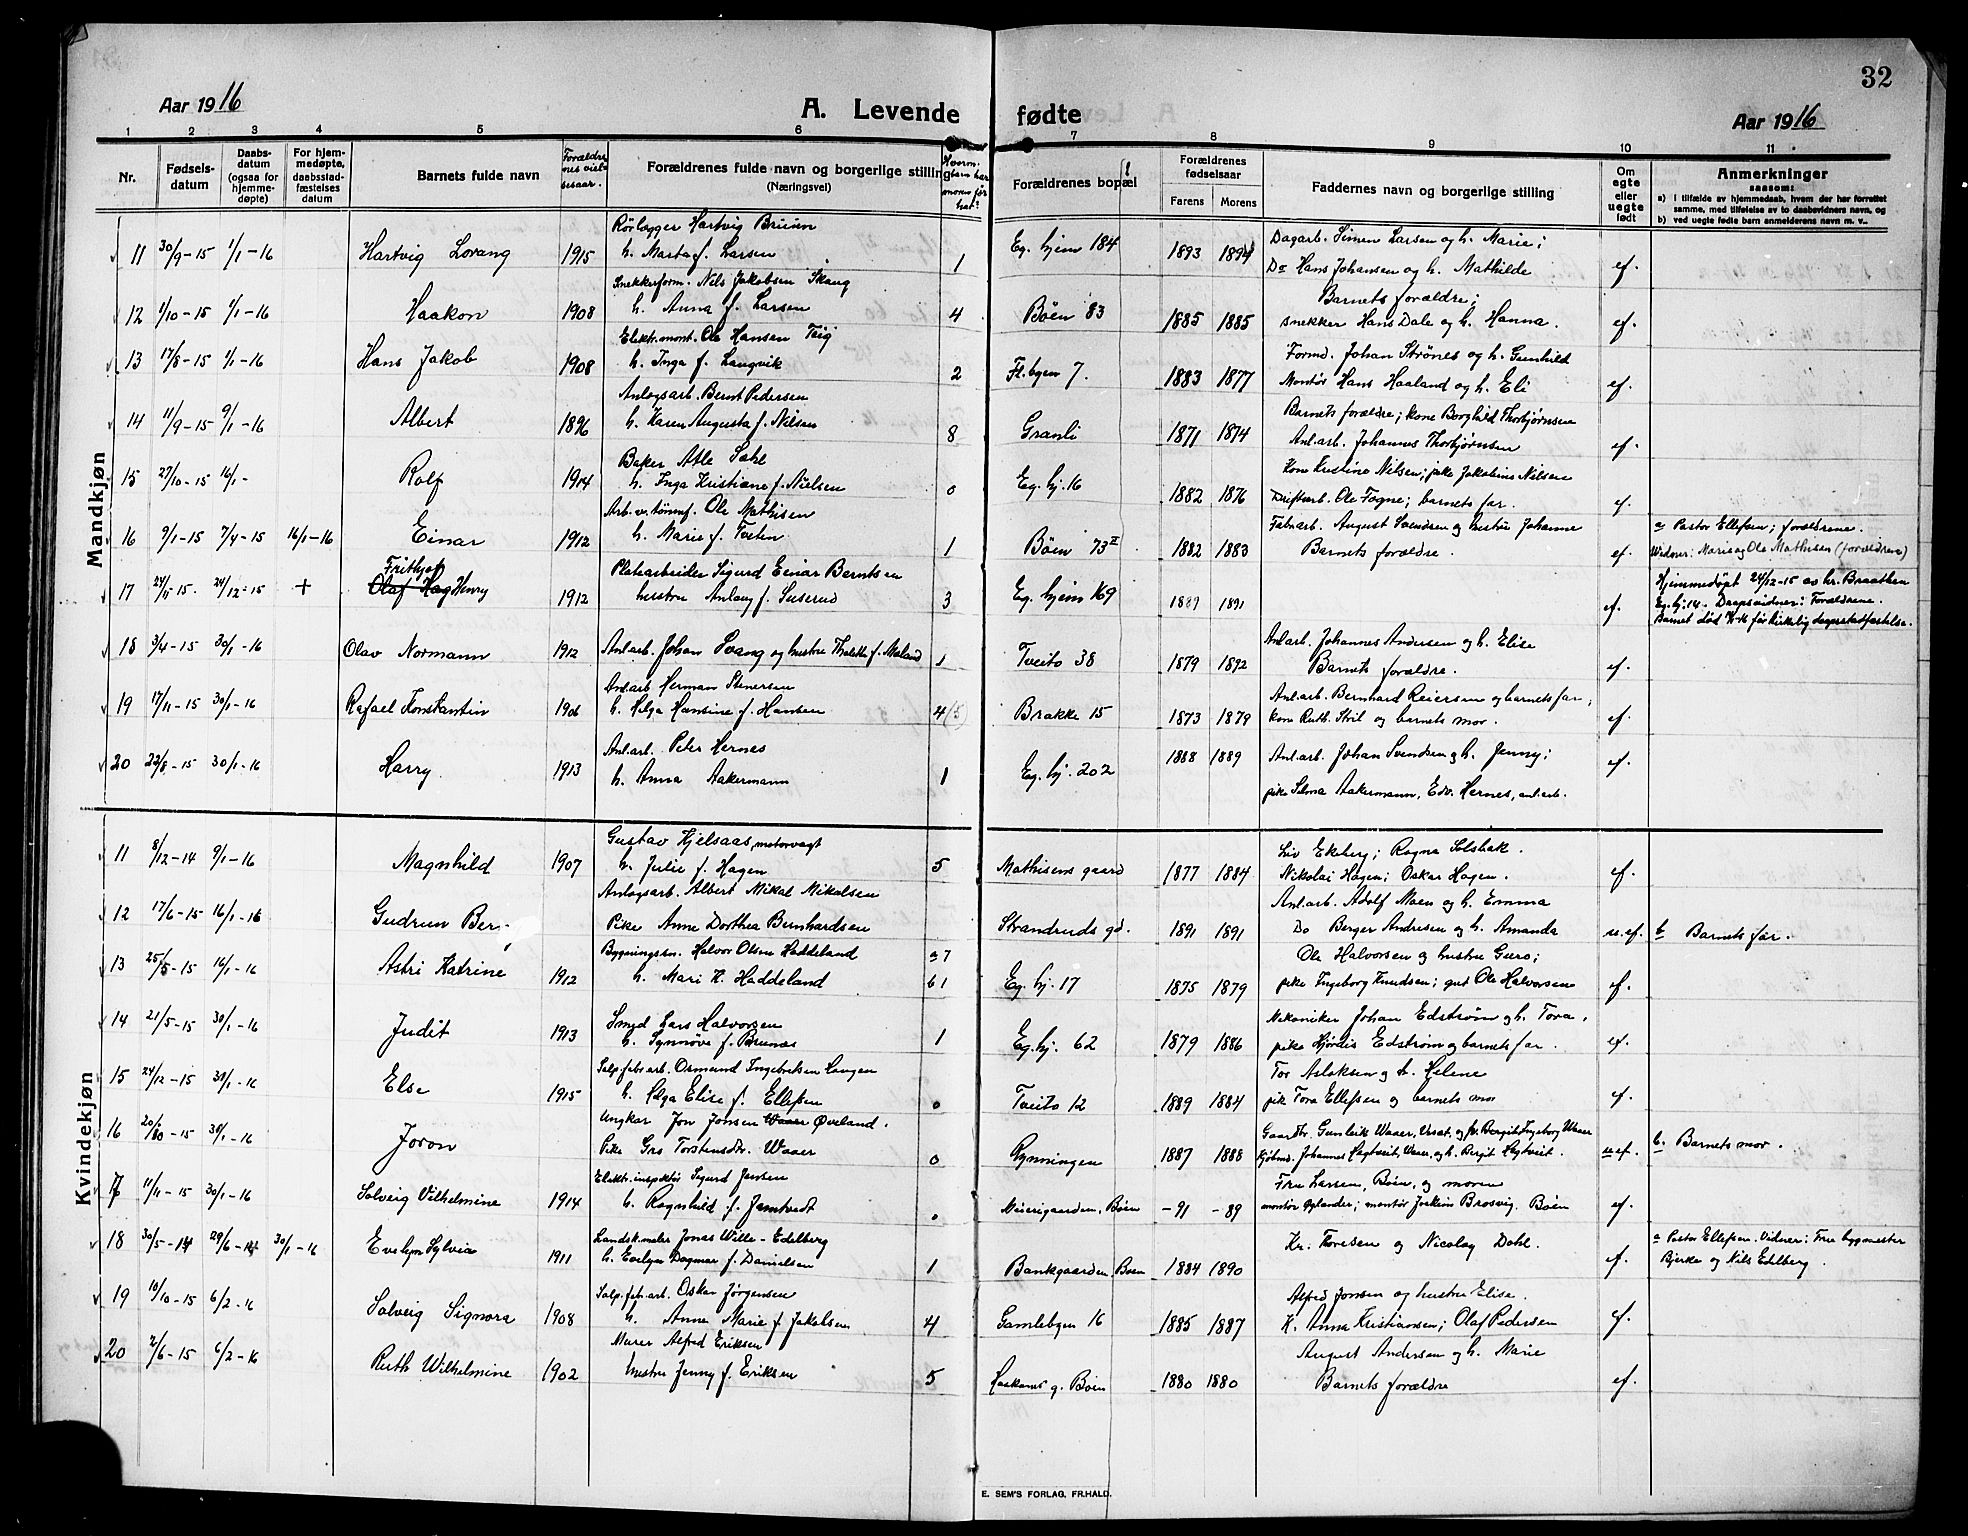 32
Aar 1916 A. Levende fødte Aar 1916
1 2 3 4 5 6 7 8 9 10 11
Nr. Fødsels-datum Daabs-datum (ogsaa for hjemme-døpte) For hjem-medøpte, daabsstad-fæstelses datum Barnets fulde navn Forældrenes vielsesaar. Forældrenes fulde navn og borgerlige stilling (Næringsvei) Forældrenes bopæl Forældrenes fødselsaar Farens Morens Faddernes navn og borgerlige stilling Om egte eller uegte født Anmerkninger saasom: a) i tilfælde av hjemmedaab, hvem der har forrettet samme, med tilføielse av to daabsvidners navn, og b) ved uegte fødte barn anmelderens navn m. v..
Mandkjøn
Rørlægger Hartvig Bruun
11 30/9-15 1/1-16 Hartvig Lovang 1915 h. Marta f. Larsen 1 Eg. hjem 184 1893 1894 Dagarb. Simen Larsen og h. Marie;
Do Hans Johansen og h. Mathilde ef.
Snekkerform. Nils Jakobsen Skaug
12 1/10-15 1/1-16 Haakon 1908 h. Anna f. Larsen 4 Bøen 83 1885 1885 Barnets forældre;
snekker Hans Dale og h. Hanna. ef.
Elektr.mont. Ole Hansen Teig
13 17/8-15 1/1-16 Hans Jakob 1908 h. Inga f. Langvik 2 Fl.byen 7. 1883 1877 Formd. Johan Strønes og h. Gunhild
Montør Hans Haaland og h. Eli ef.
Anlægsarb. Bernt Pedersen
14 11/9-15 9/1-16 Albert 1896 h. Karen Augusta f. Nilsen 8 Granli 1871 1874 Barnets forældre; kone Borghild Thorbjørnsen
Anl.arb. Johannes Thorbjørnsen ef.
Baker Atle Sæhl
15 27/10-15 16/1- Rolf 1914 h. Inga Kristiane f. Nielsen 0 Eg. hj. 16 1882 1876 Kone Kristine Nilsen; pike Jakobine Nilsen
Driftsarb. Ole Fogne; barnets far. ef.
Ole Mathisen
16 9/1-15 7/4-15 16/1-16 Einar 1912 h. Marie f. Tveten 1 Bøen 73 II 1882 1883 Fabr.arb. August Svendsen og hustru Johanne
Barnets forældre. ef. a Pastor Ellefsen; forældrene.
Vidner: Marie og Ole Mathisen (forældrene)
17 24/11-15. 24/12-15 + Frithjof Olaf Hag Henry 1912 Platearbeider Sigurd Einar Berntsen
hustru Anlaug f. Suserud 3 Eg. hjem 169 1889 1891 ef. Hjemmedøpt 24/12-15 av hr. Braathen
Eg.hj. 14. Daapsvidner: Forældrene.
Barnet død før kirkelig daapsstadfæstelse.
18 3/4-15 30/1-16 Olav Normann 1912 Anl.arb. Johan Svang og hustru Thalette f. Moland 1 Tveito 38 1879 1892 Anl.arb. Johannes Andersen og h. Elise
Barnets forældre. ef.
Anl.arb. Herman Stenersen
19 17/11-15 30/1-16 Rafael Konstantin 1906 h. Helga Hansine f. Hansen 4 (5) Brakke 15 1873 1879 Anl.arb. Bernhard Reiersen og barnets far;
kone Ruth Stril og barnets mor. ef.
Anl.arb. Peter Hernes
20 22/8-15 30/1-16 Harry. 1913 h. Anna Aakermann 1 Eg. hj. 202 1888 1889 Anl.arb. Johan Svendsen og h. Jenny;
pike Selma Aakermann, Edv. Hernes, anl.arb. ef.
Kvindekjøn
Gustav Kjelsaas, motorvagt
11 8/12-14 9/1-16 Magnhild 1907 h. Julie f. Hagen 5 Mathisens gaard 1877 1884 Liv Ekeberg; Ragna Solsbak.
Nikolai Hagen; Oskar Hagen. ef.
Anlægsarb. Albert Mikal Mikalsen
12 17/6-15 16/1-16 Gudrun Ber- Pike Anne Dorthea Bernhardsen Strandruds gd. 1891 1891 Anl.arb. Adolf Moen og h. Emma
Do Berger Andresen og h. Amanda u.ef. b Barnets far.
Bygningssn. Halvor Olsen Haddeland a 7
13 25/5-15 16/1-16 Astri Katrine 1912 h. Mari K. Haddeland b 1 Eg. hj. 17 1875 1879 Ole Halvorsen og hustru Guro;
pike Ingeborg Knudsen; gut Ole Halvorsen ef.
Smed Lars Halvorsen
14 21/5-15 30/1-16 Judit 1913 h. Synnøve f. Brunæs 1 Eg.hj. 62 1879 1886 Mekaniker Johan Edstrøm og h. Tora,
pike Hjørdis Edstrøm og barnets far. ef.
Salp.fabr.arb. Osmund Ingebretsen Langen
15 24/12-15 30/1-16 Else 1915 h. Helga Elise f. Ellefsen 0 Tveito 12 1889 1884 Tor Aslaksen og h. Helene
pik Tora Ellefsen og barnets mor ef.
Ungkar Jon Jonsen Waaer Øveland.
16 20/10-15 30/1-16 Joron Pike Gro Torstensdtr. Waaer 0 Rynningen 1887 1888 Gaardbr. Gunleik Waaer, Vesat, og fr. Bergit Ingeborg Waaer
Kjøbmd. Johannes Hegtveit, Waaer, og h. Bergit Hegtveit. u ef. b. Barnets mor.
Elektr. inspektør Sigurd Jensen
17 11/11-15 30/1-16 Solveig Vilhelmine 1914 h. Ragnhild f. Jamtvedt 0 Meierigaarden, Bøen -91 -89 Fru Larsen, Bøen, og moren
montør Oplander; montør Joakim Brosvig. Bøen ef.
Landsk.maler Jonas Wille-Edelberg
18 30/5-14 29/6-14 30/1-16 Evelyn Sylvia 1911 h. Evelyn Dagmar f. Danielsen 1 Bankgaarden, Bøen 1884 1890 Kr. Thoresen og Nicolay Dahl. ef. a Pastor Ellefsen. Vidner: Frue bygmester
Bjerke og Nils Edelberg.
Salp.fabr.arb. Oskar Jørgensen
19 10/10-15 6/2-16 Solveig Signora 1908 h. Anne Marie f. Jakobsen 4 Gamlebyen 16 1885 1887 Alfred Jonsen og hustru Elise.
K. Anna Kristiansen; Olaf Pedersen ef.
Murer Alfred Eriksen
20 7/6-15 6/2-16 Ruth Wilhelmine 1902 hustru Jenny f. Eriksen 5 Haakons g. Bøen 1880 1880 August Andersen og h. Marie
Barnets forældre ef.
E. SEM'S FORLAG, FR.HALD.